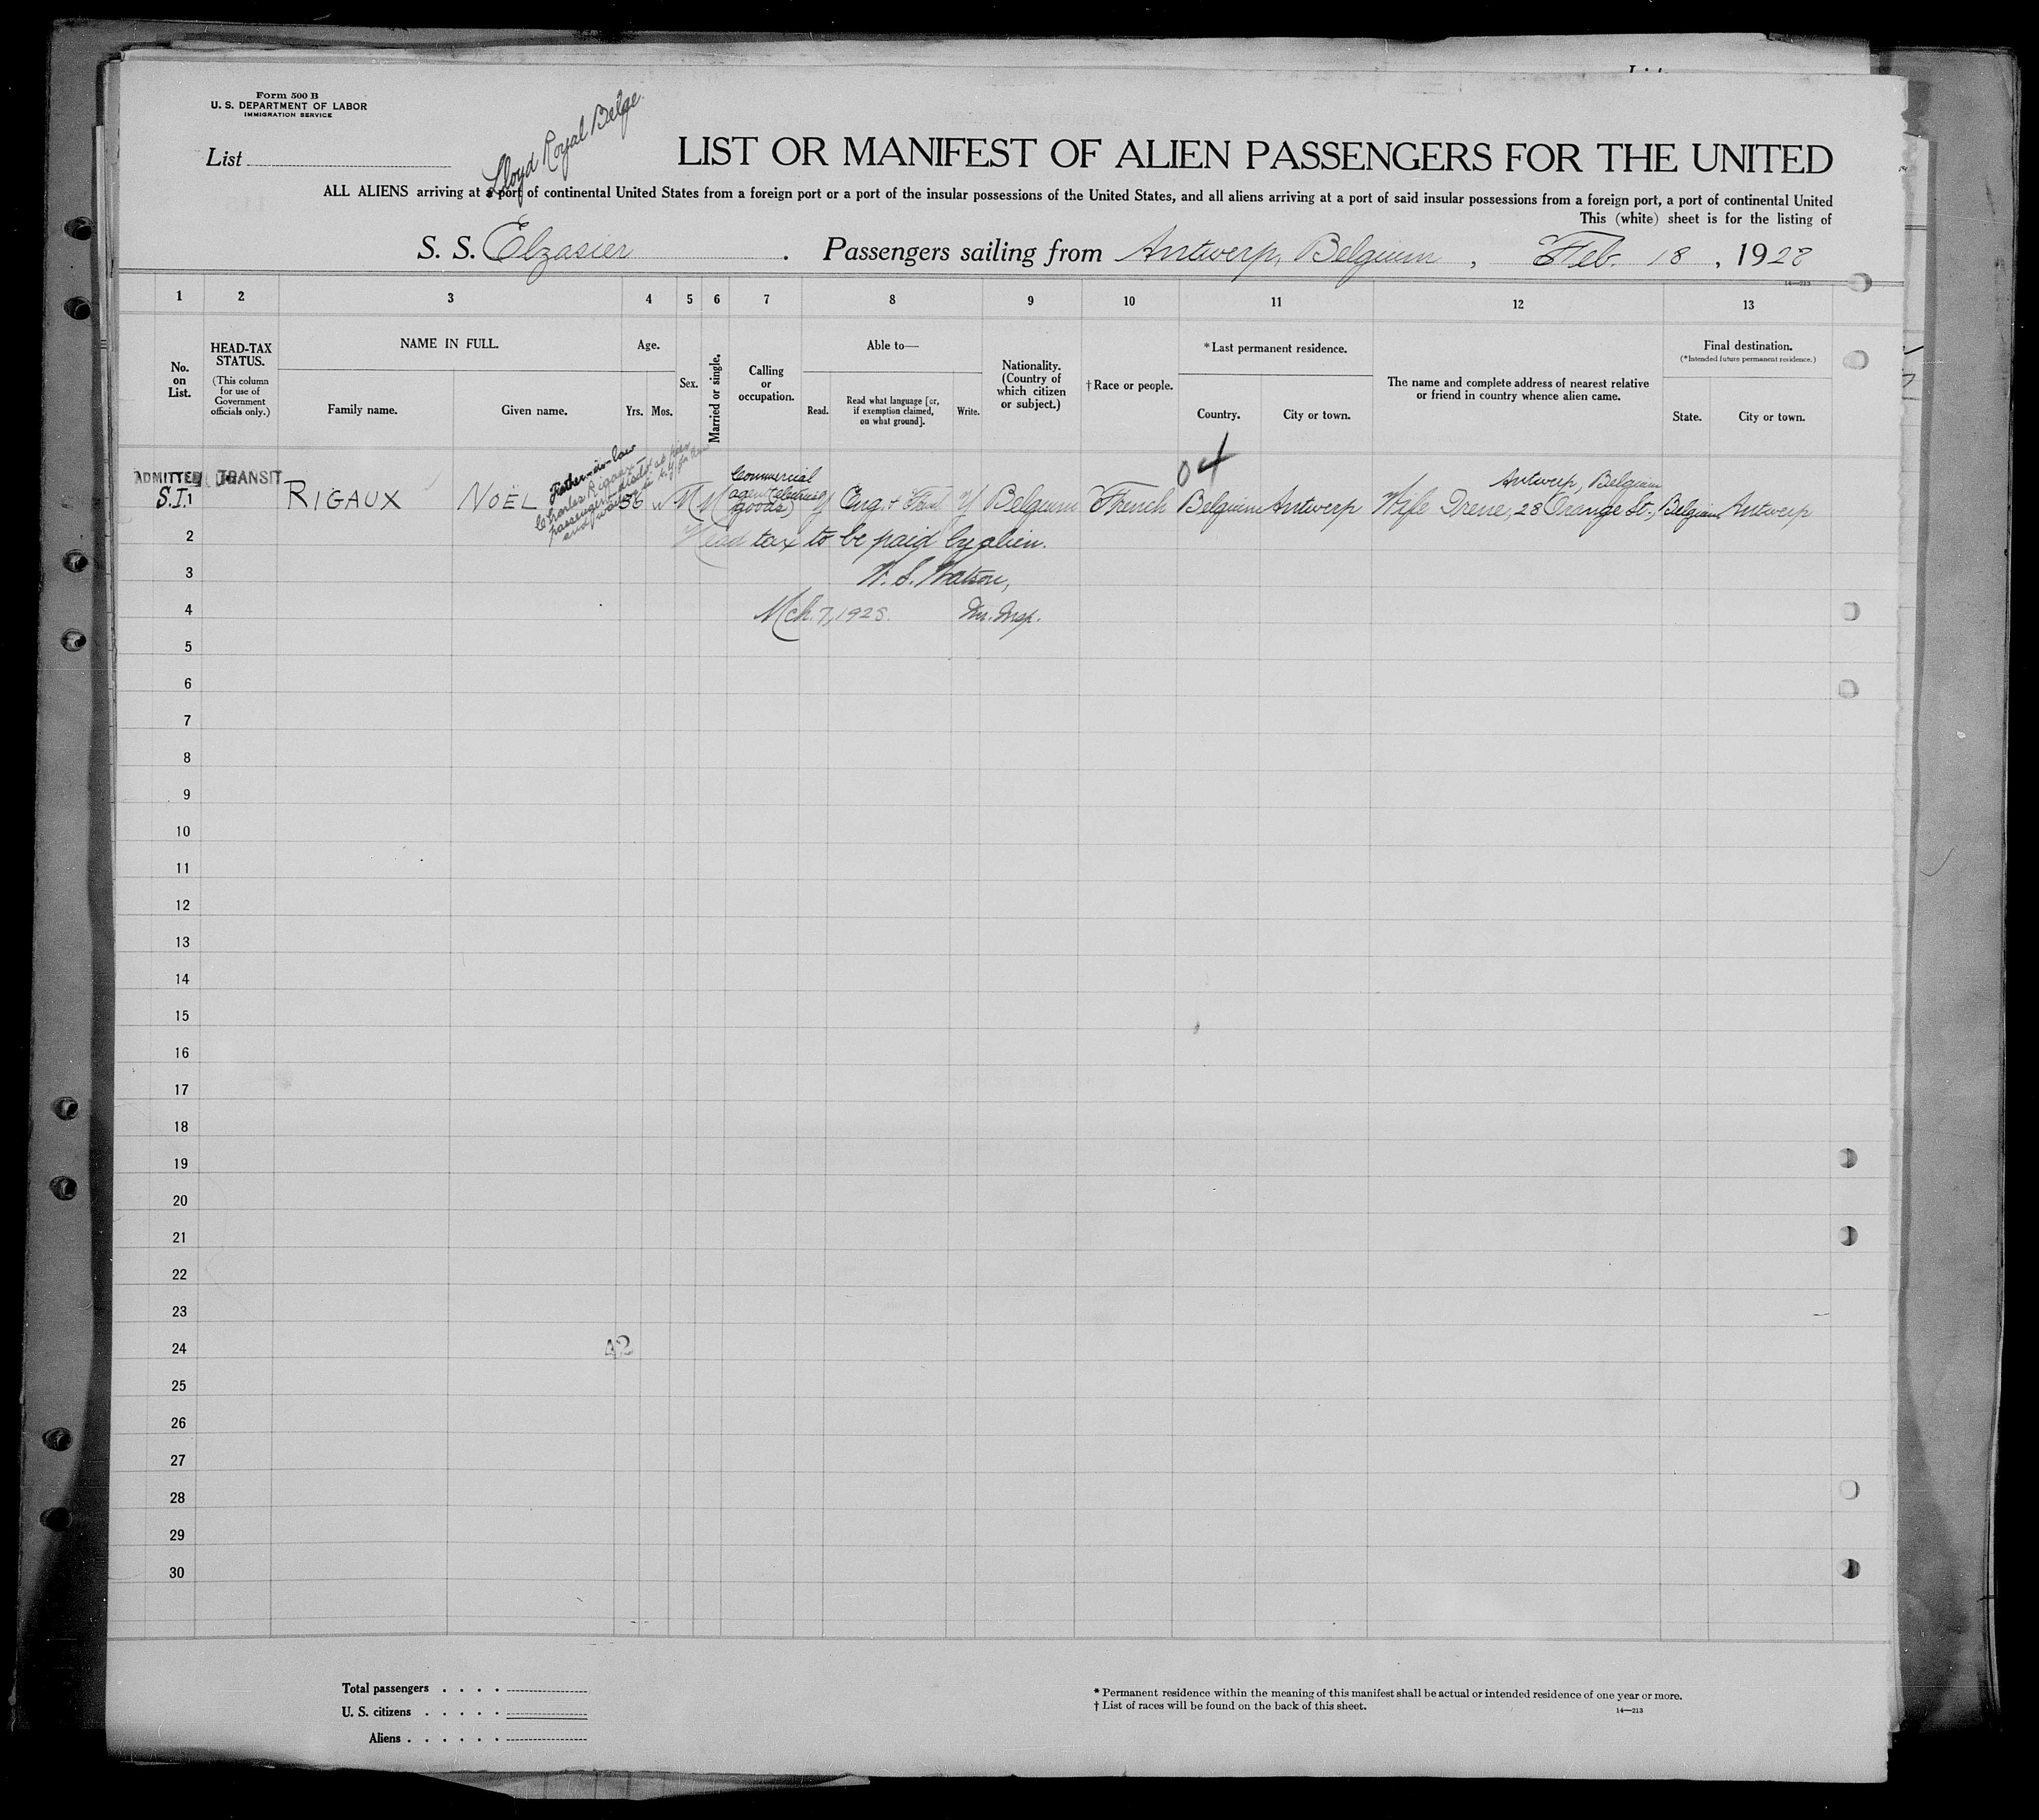 Form 500 B
U. S. DEPARTMENT OF LABOR
IMMIGRATION SERVICE
List
Lloyd Royal Belge.
LIST OR MANIFEST OF ALIEN PASSENGERS FOR THE UNITED
ALL ALIENS arriving at a port of continental United States from a foreign port or a port of the insular possessions of the United States, and all aliens arriving at a port of said insular possessions from a foreign port, a port of continental United
This (white) sheet is for the listing of
S. S. Elzasier . Passengers sailing from Antwerp, Belgium , Feb. 18 , 1928
14—213
1 2 3 4 5 6 7 8 9 10 11 12 13
No. on List.
HEAD-TAX STATUS.
(This column for use of Government officials only.)
NAME IN FULL.
Family name.
Given name.
Age.
Yrs. Mos.
Sex.
Married or single.
Calling or occupation.
Able to—
Read.
Read what language [or, if exemption claimed, on what ground].
Write.
Nationality. (Country of which citizen or subject.)
† Race or people.
*Last permanent residence.
Country.
City or town.
The name and complete address of nearest relative or friend in country whence alien came.
Final destination.
(*Intended future permanent residence.)
State.
City or town.
04
ADMITTED TRANSIT
Father-in-law
Charles Rigaux
passenger
Commercial agent (electrical goods)
Antwerp, Belgium
S.I. 1 RIGAUX NOËL 56 M M Y Eng. + Y Belgium French Belgium Antwerp Wife Irene, 28 Orange St., Belgium Antwerp
2 Head tax to be paid by alien.
3 W. S. Watson,
4 Mch. 7, 1928. Im. Insp.
5
6
7
8
9
10
11
12
13
14
15
16
17
18
19
20
21
22
23
24 42
25
26
27
28
29
30
Total passengers . . . .
U. S. citizens . . . . .
Aliens . . . . . .
* Permanent residence within the meaning of this manifest shall be actual or intended residence of one year or more.
† List of races will be found on the back of this sheet.
14—213